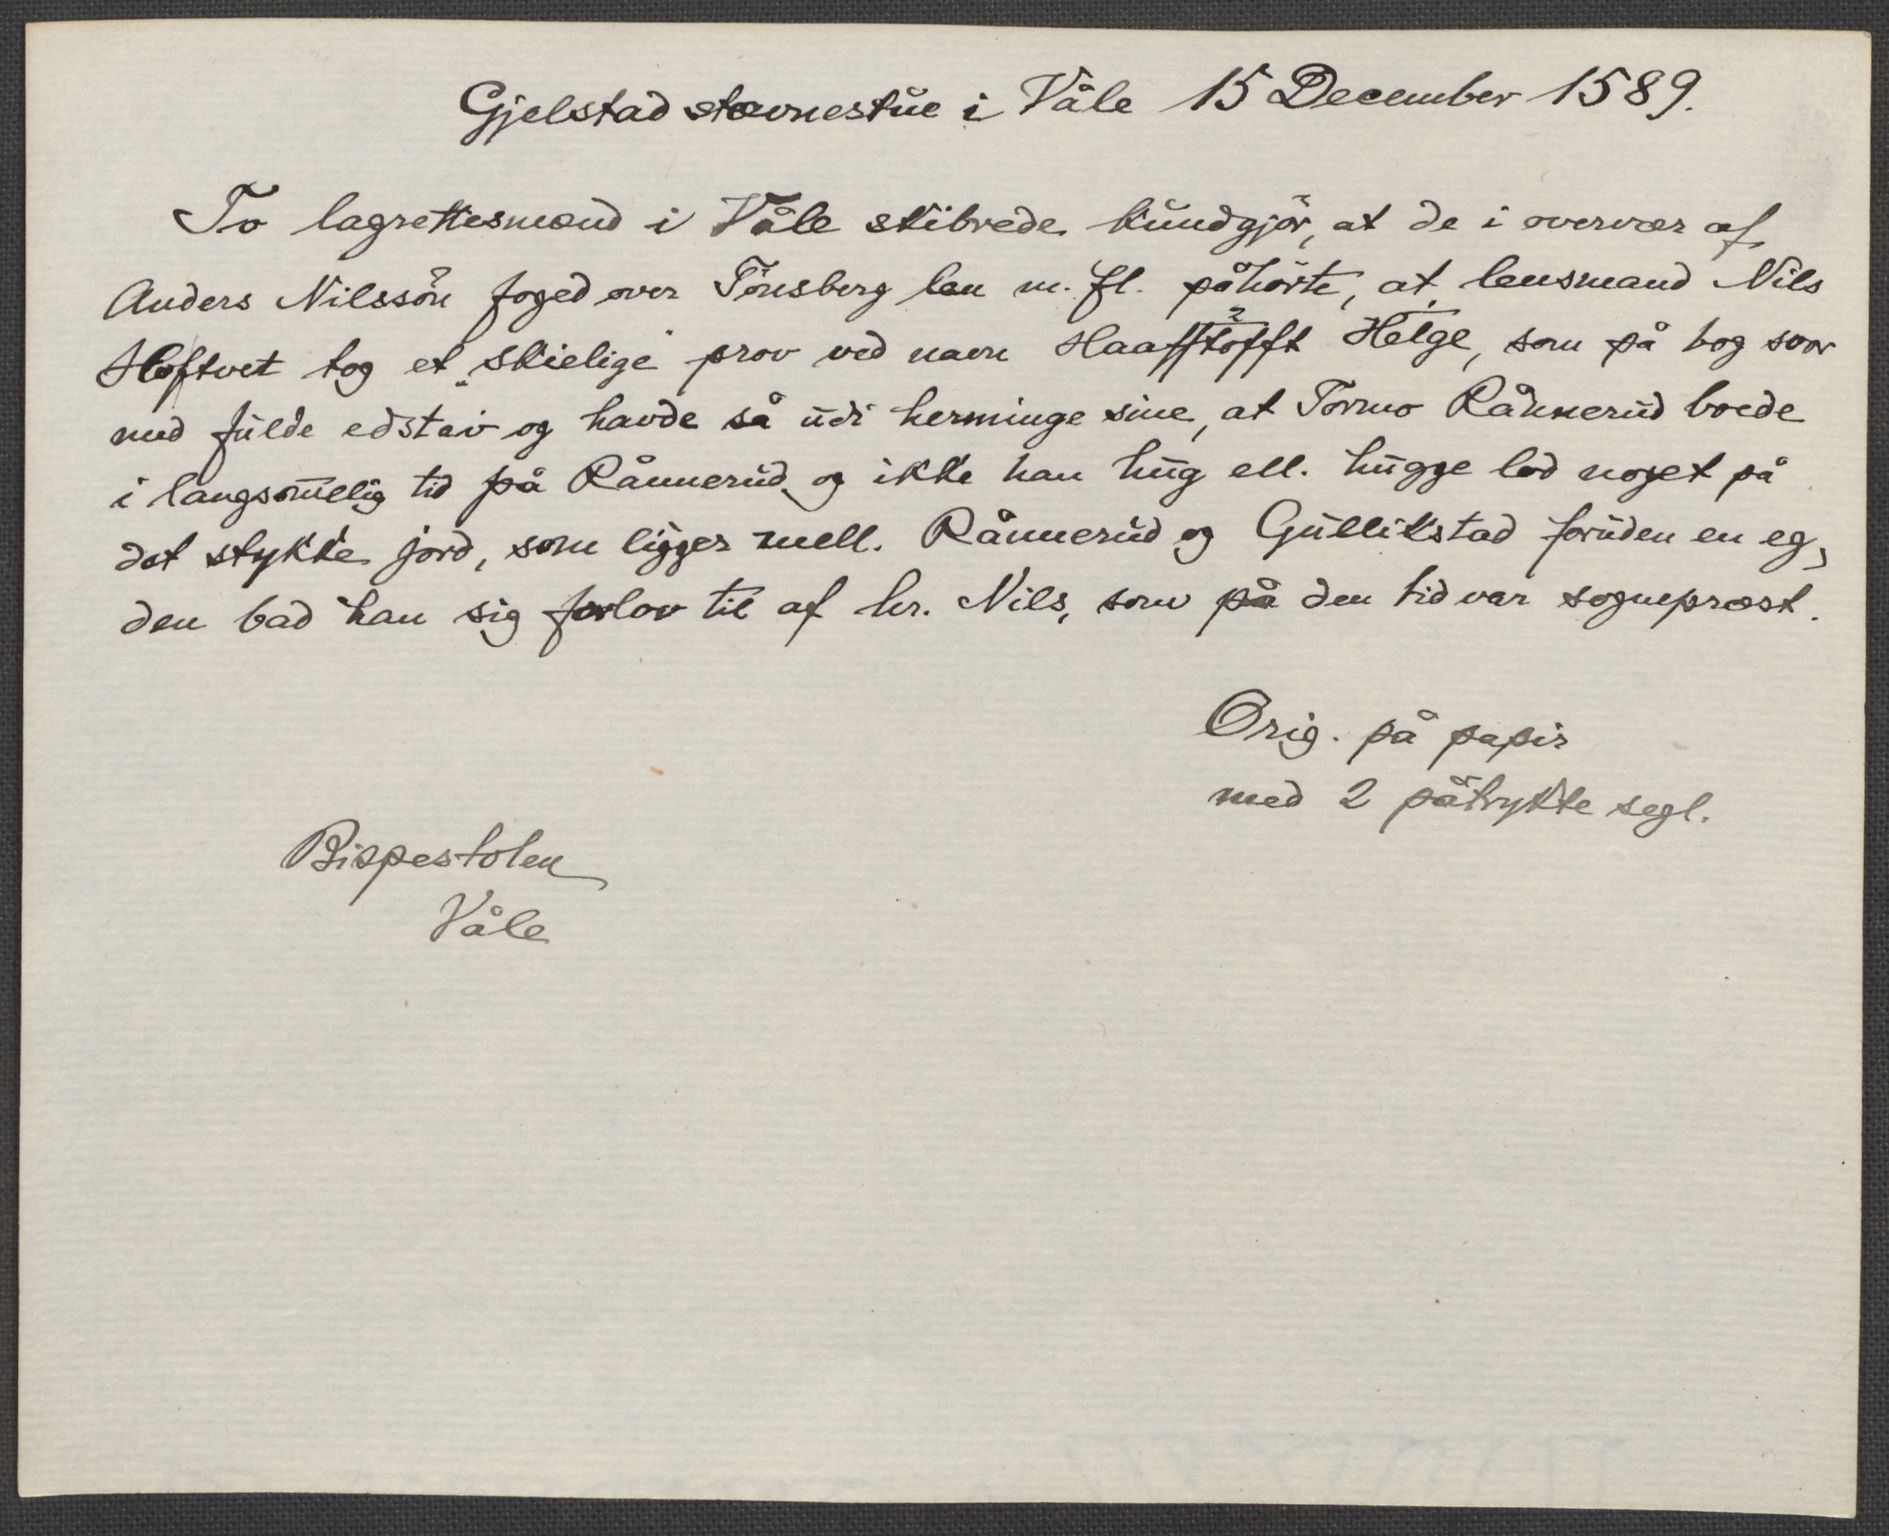 Gjelstad stævnestue i Våle 15 December 1589.
To lagrettesmænd i Våle skibrede kundgjør, at de i overvær af
Anders Nilssøn foged over Tønsberg len m. fl. påhørte, at lensmand Nils
Hoftvet tog et "skielige" prov ved navn Haafftöfft Helge, som på bog svor
med fulde edstav og havde så udi herminge sine, at Tormo Rånnerud boede
i langsommelig tid på Rånnerud og ikke han hug ell. hugge lod noget på
det stykke jord, som ligger mell. Rånnerud og Gullikstad foruden en eg,
den bad han sig forlov til af hr. Nils, som på den tid var sogneprest.
Orig. på papir
med 2 påtrykte segl.
Bispestolen
Våle